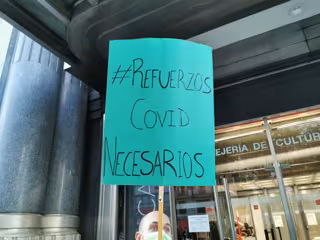 #REFUERZOS
COVID
NECESARIOS
EJERÍA DE CULTU